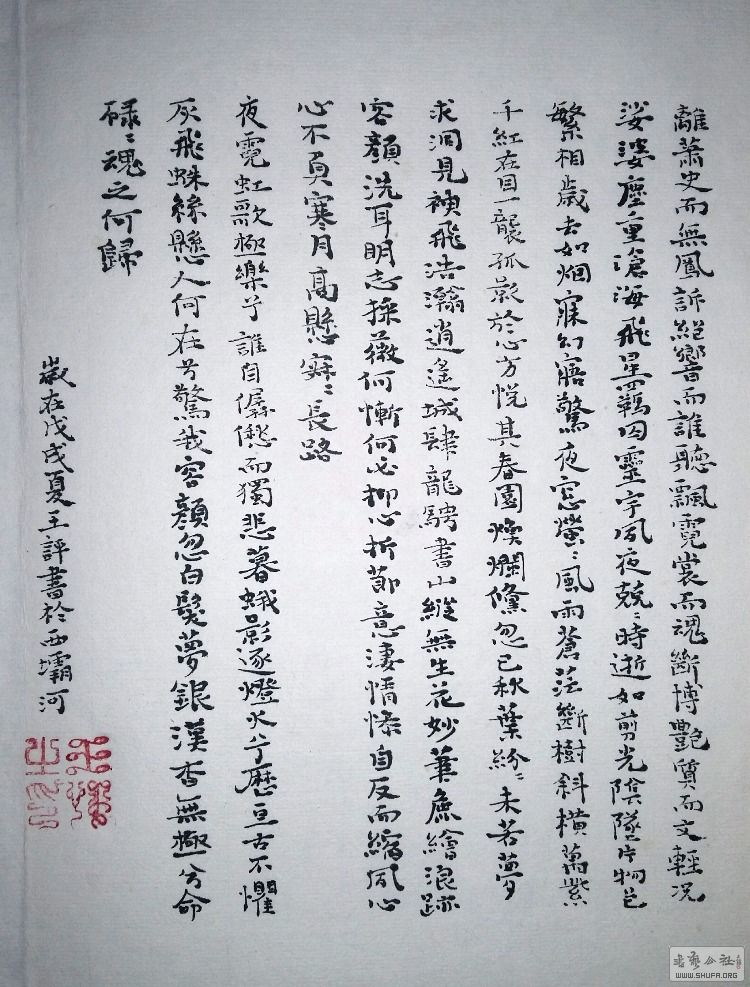 離蕭史而無鳳訴絕響而誰聽飄霓裳而魂斷博艷質而文輕况
娑婆塵重滄海飛星羈囚靈宇夙夜兢〻時逝如剪光隙墜片物色
繁相歲去如烟寐幻寤驚夜窓螢〻風雨蒼茫斷樹斜橫萬紫
千紅在目一襲孤影於心方悦其春園煥爛儵忽已秋葉紛〻未若夢
求洞見神飛浩瀚逍遥城肆龍騁書山縱無生花妙筆魚繪浪跡
容顔洗耳明志採薇何慚何必抑心折節意淒情慘自反而縮夙心
心不負寒月高懸寂〻長路
夜霓虹歌極樂兮誰自僝僽而獨悲暮蛾影逐燈火兮歷亘古不懼
灰飛蛛絲懸人何在兮驚我容顔忽白髮夢銀漢杳無極兮命
碌〻魂之何歸
歲在戊戌夏王評書於西壩河
书法公社
WWW.SHUFA.ORG